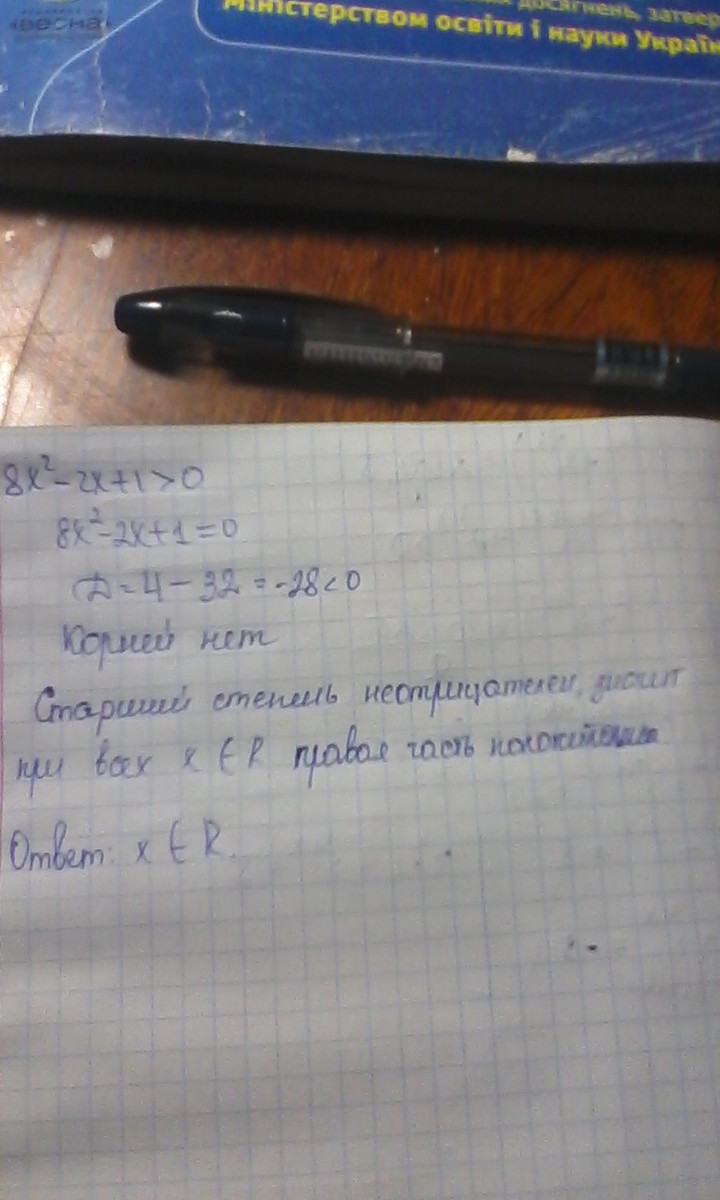 «весна»
досягнень, затвер
Міністерством освіти і науки Україн
8x²-2x+1>0
8x²-2x+1=0
D=4-32=-28<0
Корней нет
Старший степень неотрицателен, значит
при всех x ∈ R правая часть положительна
Ответ: x ∈ R.